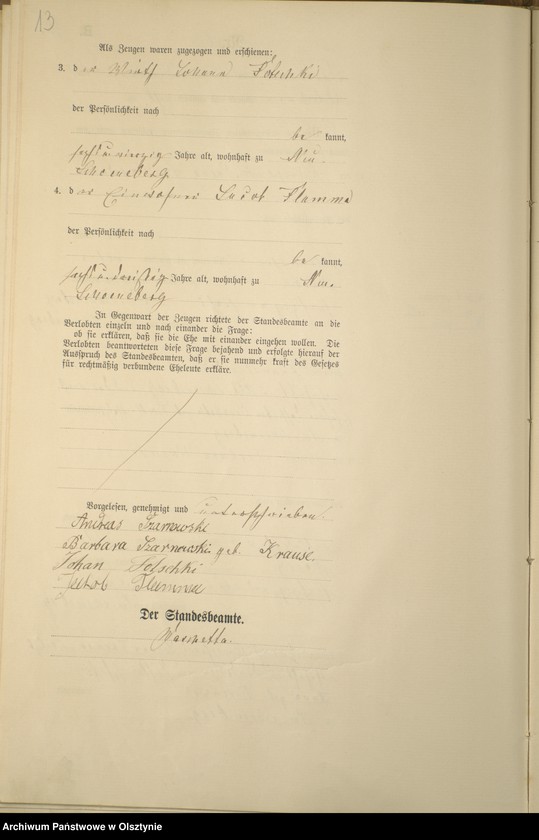 13
Als Zeugen waren zugezogen und erschienen:
3. der Wirth Johann
der Persönlichkeit nach
be kannt,
sechsundvierzig Jahre alt, wohnhaft zu Neu-
Schoeneberg
4. der Einwohner Jacob Flamma
der Persönlichkeit nach
be kannt,
Jahre alt, wohnhaft zu Neu-
Schoeneberg
In Gegenwart der Zeugen richtete der Standesbeamte an die
Verlobten einzeln und nach einander die Frage:
ob sie erklären, daß sie die Ehe mit einander eingehen wollen. Die
Verlobten beantworteten diese Frage bejahend und erfolgte hierauf der
Ausspruch des Standesbeamten, daß er sie nunmehr kraft des Gesetzes
für rechtmäßig verbundene Eheleute erkläre.
Vorgelesen, genehmigt und unterschrieben.
Andreas
Barbara geb. Krause.
Johan
Jakob
Der Standesbeamte.
Archiwum Państwowe w Olsztynie